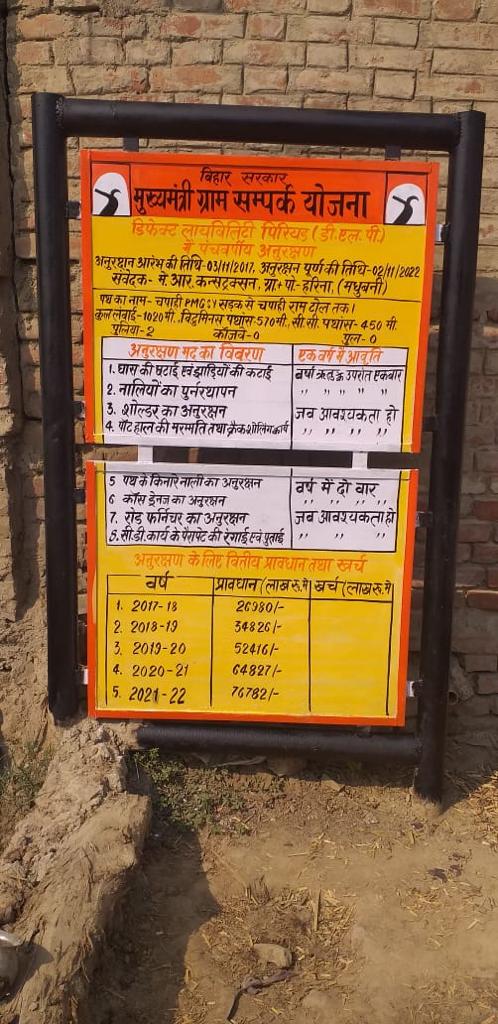 बिहार सरकार
मुख्यमंत्री ग्राम सम्पर्क योजना
डिफेक्ट लायविलिटी पिरियड (डी.एल.पी.)
में पंचवर्षीय अनुरक्षण
अनुरक्षन आरंभ की तिथि-03/11/2017, अनुरक्षन पूर्ण की तिथि-02/11/2022
संवेदक- मे. आर. कन्सट्रक्सन, ग्रा+पो-हरिना, (मधुबनी)
पथ का नाम- चपाही PMGSY सड़क से चपाही राम टोल तक।
कुल लंबाई-1020मी., विटुमिनस पथांस-570मी., सी.सी. पथांस-450 मी.
पुलिया-2 कॉजवे-0 पुल-0
अनुरक्षण मद का विवरण एक वर्ष में आवृति
1. घास की छटाई एवं झाड़ियों की कटाई वर्षा ऋतु के उपरांत एकबार
2. नालियों का पुर्नस्थापन ,, ,, ,, ,,
3. शोल्डर का अनुरक्षन जब आवश्यकता हो
4. पॉट हाल्स की मरम्मति तथा क्रैक शीलिंग कार्य ,, ,, ,, ,,
5 पथ के किनारे नाली का अनुरक्षन वर्ष में दो वार
6 क्रॉस ड्रेनज का अनुरक्षन ,, ,, ,,
7. रोड फर्निचर का अनुरक्षन जब आवश्यकता हो
8. सी.डी. कार्य के पैरापेट की रंगाई एवं पुताई ,, ,, ,,
अनुरक्षण के लिए वितीय प्रावधान तथा खर्च
वर्ष प्रावधान (लाख रू. मे) खर्च (लाख रू. मे)
1. 2017-18 26980/-
2. 2018-19 34826/-
3. 2019-20 52416/-
4. 2020-21 64827/-
5. 2021-22 76782/-